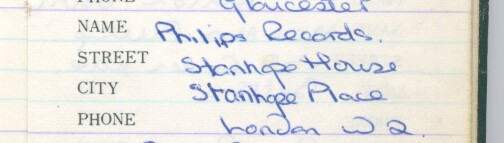 PHONE Gloucester
NAME Philips Records.
STREET Stanhope House
CITY Stanhope Place
PHONE London W2.